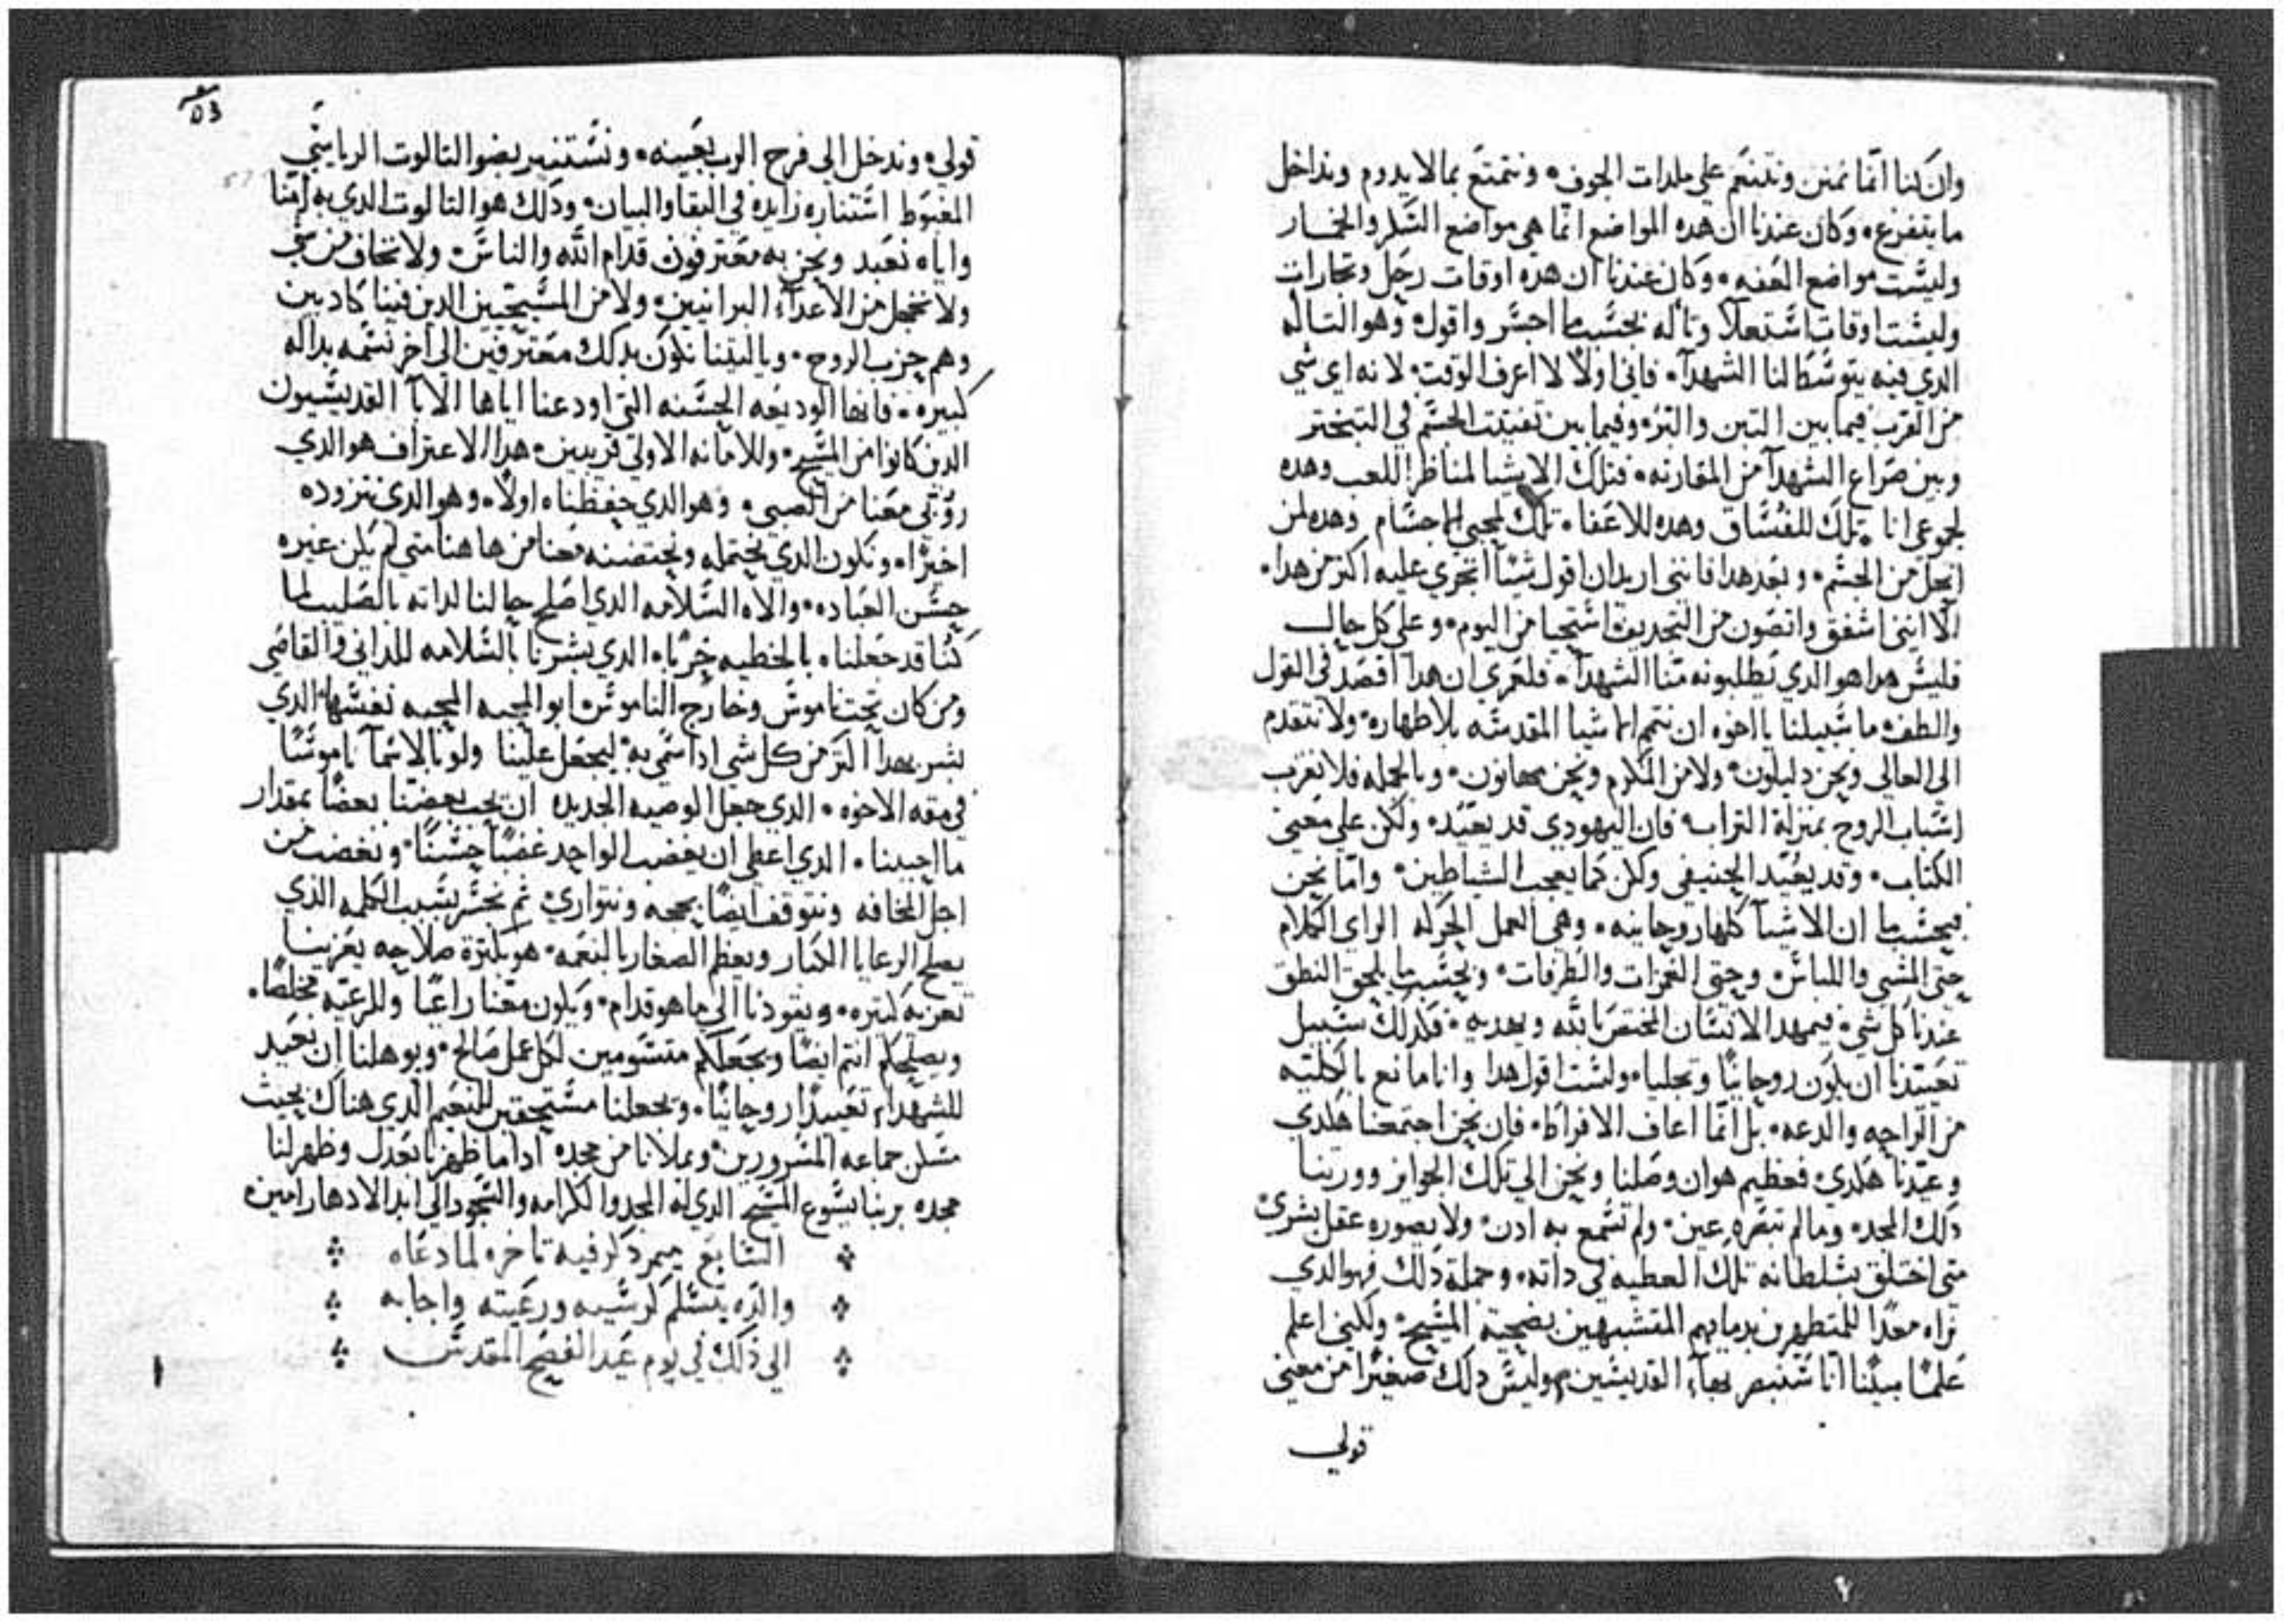 وان كنا انما نمنن ونتنعم على ملدات الجوف. ونتمتع بما لا يدوم ونداخل
ما يتفرغ. وكان عندنا ان هده المواضع انما هي مواضع السكر والخمار
وليست مواضع العفه. وكان عندنا ان هده اوقات رجل وتجارات
وليست اوقات استعلا وتأله بحسب ما اجسر واقول. وهو التاله
الدي فيه يتوسط لنا الشهدآ. فاني اولاً لا اعرف الوقت. لانه اي شي
من القرب فيما بين التبن والبر. وفيما بين تفتيت الحشم في التبختر
وبين صراع الشهدآ من المقارنه. فتلك الاشيا لمناظر اللعب وهده
لجموعي انا. تلك للفساق وهده للاعفا. تلك لمحبي الاجسام وهده لمن
انحل من الجسم. وبعد هدا فانني اريد ان اقول شيئاً اتجري عليه اكتر من هدا.
الا انني اشفق واتصون من التجديف استحيا من اليوم. وعلى كل حال
فليس هدا هو الدي تطلبونه منا الشهدآ. فلعمري ان هدا اقصد في القول
والطف. ما سبيلنا يا اخوه ان نتمم الاشيا المقدسه بلا طهاره. ولا نتقدم
الى العالي ونحن دليلون. ولا من المكرم ونحن مهانون. وبالجمله فلا نغرب
اسباب الروح بمنزلة التراب. فان اليهودي قد يعيد. ولكن على معنى
الكتاب. وقد يعيد الحنيفي ولكن كما يعجب الشياطين. واما نحن
فبحسب ما ان الاشيآ كلها روحانيه. وهي العمل الحركه الراي الكلام
حتى المشي واللباس. وحتى الغمزات والطرفات. وبحسب ما يلحق النطق
عندنا كل شي. فيمهد الانسان المختص بالله ويهديه. فكدلك سبيل
تعييدنا ان يكون روحانيا وتجليا. ولست اقول هدا وانا مانع بالكليه
من الراحه والدعه. بل انما اعاف الافراط. فان نحن اجتمعنا هكدي
وعيدنا هكدي. فعظيم هو ان وصلنا ونحن الى تلك الجوايز وورتنا
دلك المجد. وما لم تبصره عين. ولم تسمع به ادن. ولا يصوره عقل بشري
متى اختلق بسلطانه تلك العطيه في داته. وجملة دلك فهو الدي
نراه معداً للمتطهرين بدمايهم المتشبهين بضحية المسيح. ولكنني اعلم
علماً مبيناً انا سنبصر بهآء القديسين. وليس دلك صغيراً من معنى
قولي
٥٣
قولي. وندخل الى فرح الرب بعينه. ونستنير بضو التالوت الرياسي
المغبوط استناره زايده في النقا والبيان. ودلك هو التالوت الدي به امنا
واياه نعبد ونحن به معترفون قدام الله والناس. ولا نخاف من شي
ولا نخجل من الاعدآء البرانيين. ولا من المسيحيين الدين فينا كادبين
وهم حزب الروح. وياليتنا نكون بدلك معترفين الى اخر نسمه بداله
كبيره. فانها الوديعه الحسنه التي اودعنا اياها الابآ القديسيون
الدين كانوا من المسيح. وللامانه الاولى قريبين. هدا الاعتراف هو الدي
رُوِّي معنا من الصبي. وهو الدي حفظناه اولاً. وهو الدي نتزوده
اخيراً. ونكون الدي نحتمله ونحتضنه معنا من هاهنا متى لم يكن غيره
حسن العباده. والاه السلامه الدي اصلح حالنا لداته بالصليب لما
كنا قد جعلناه بالخطيه حرباء. الدي بشرنا بالسلامه للداني والقاصي
ومن كان تحت ناموس وخارج الناموس. ابو المحبه المحبه نفسها الدي
يشر بهدا اكتر من كل شي ادا سمي به. ليجعل علينا ولو بالاسمآ ناموساً
في مقه الاخوه. الدي جعل الوصيه الجديده ان يحب بعضنا بعضاً بمقدار
ما احببنا. الدي اعطى ان يغضب الواحد غضباً حسناً. ونغضب من
اجل المخافه ونتوقف ايضاً بحجه ونتوارى تم نجسر بسبب الكلمه الذي
يصلح الرعايا الكبار ويعظم الصغار بالنعمه. هو بكترة صلاحه يعزينا
تعزيه كتيره. ويقودنا الى ما هو قدام. ويكون معنا راعياً وللرعيه مخلصاً.
ويصلحكم انتم ايضاً ويجعلكم متسومين لكل عمل صالح. ويوهلنا ان نعيد
للشهدآء تعييداً روحانياً. ويجعلنا مستحقين للنعيم الدي هناك بحيث
مسكن جماعه المسرورين. ويملانا من مجده اداما ظهرنا بعدل وظهر لنا
مجده بربنا يسوع المسيح الدي له المجد والكرامه والسجود الى ابد الادهار امين.
السابع ميمر دكر فيه تاخره لما دعاه
والده يتسلم كرسيه ورعيته واجابه
الى ذلك في يوم عيد الفصح المقدس